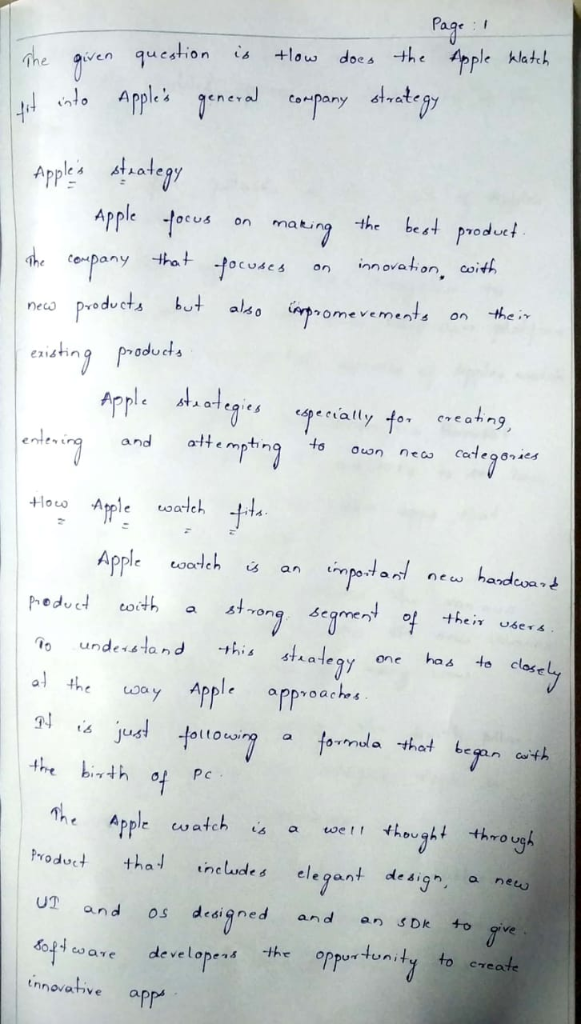 Page : 1
The given question is How does the Apple Watch
fit into Apple's general company strategy
Apple's strategy
Apple focus on making the best product.
The company that focuses on innovation, with
new products but also impromevements on their
existing products
Apple strategies especially for creating,
entering and attempting to own new categories
How Apple watch fits.
Apple watch is an important new hardware
product with a strong segment of their users.
To understand this strategy one has to closely
at the way Apple approaches.
It is just following a formula that began with
the birth of PC.
The Apple watch is a well thought through
Product that includes elegant design, a new
UI and OS designed and an SDK to give.
Software developers the opportunity to create
innovative apps.